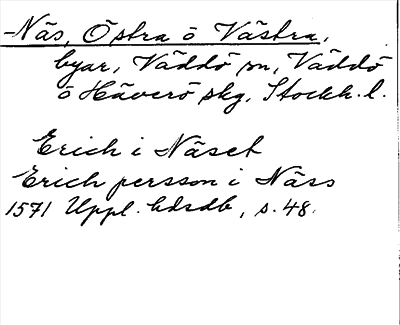 -Näs, Östra o Västra,
byar, Väddö sn, Väddö
o Häverö skg, Stockh. l.
Erich i Näset
Erich persson i Näss
1571 Uppl. hdsdb, s. 48.